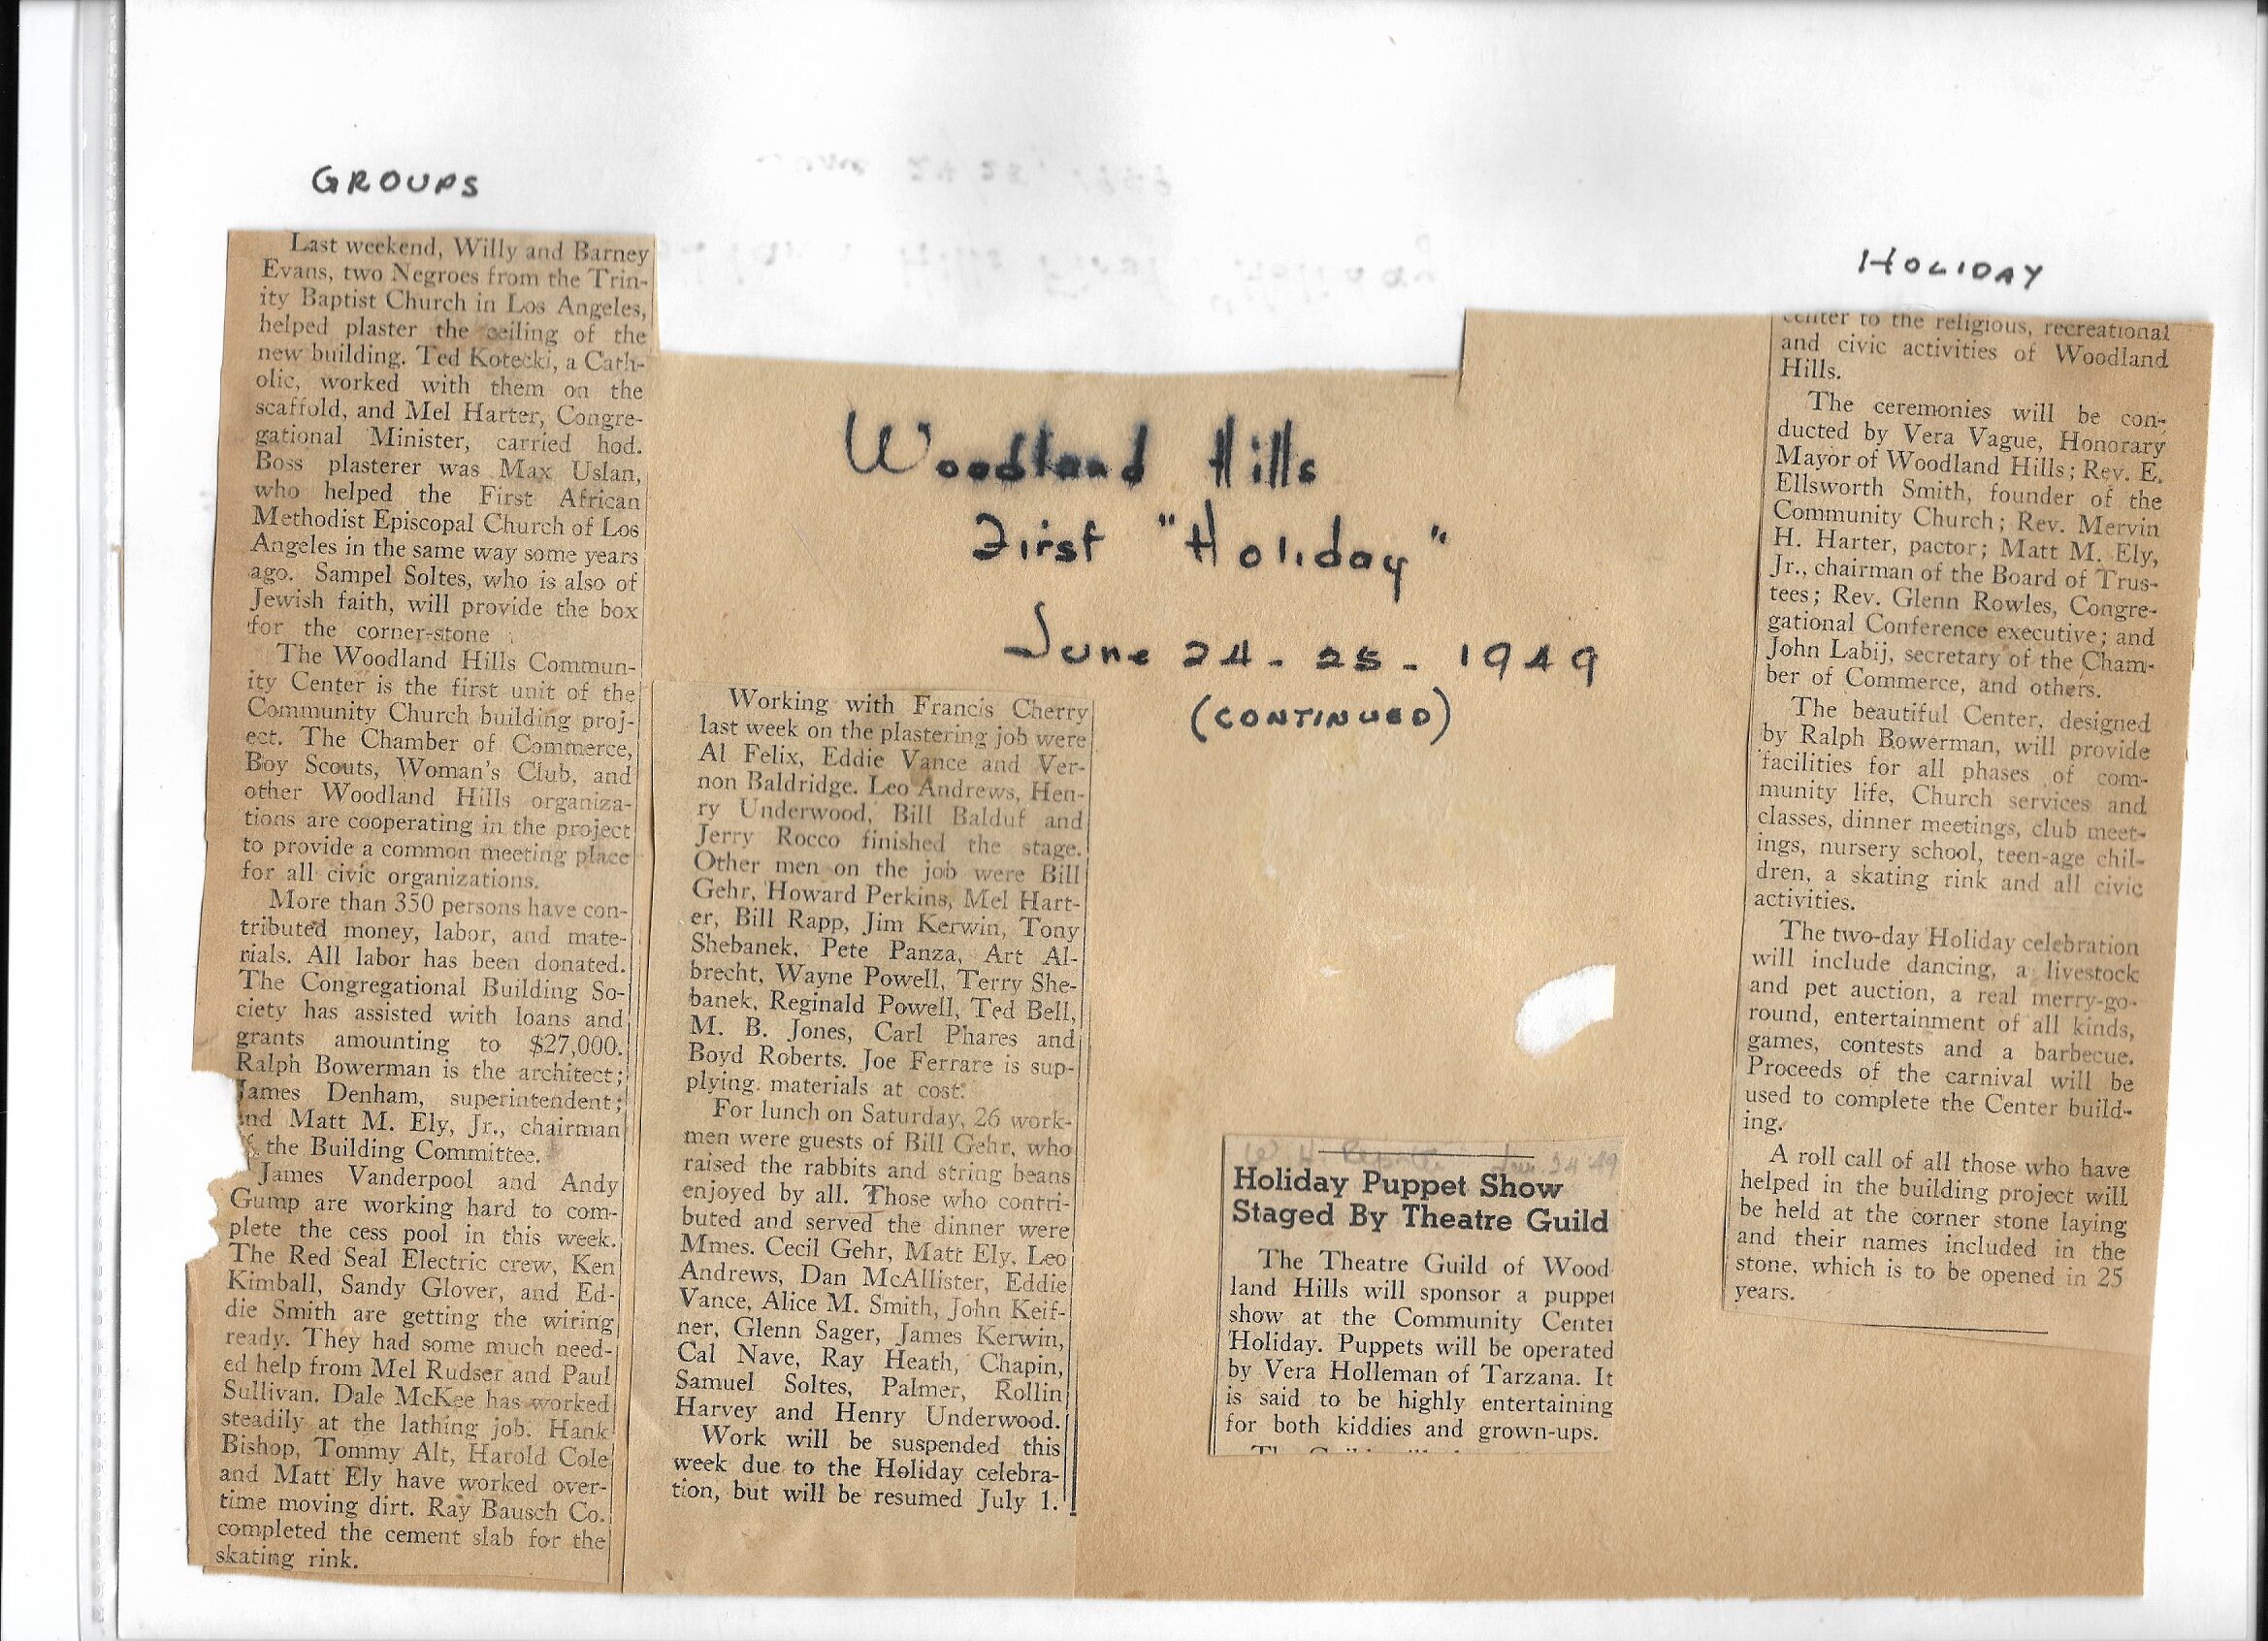 GROUPS
Last weekend, Willy and Barney
Evans, two Negroes from the Trin-
ity Baptist Church in Los Angeles,
helped plaster the ceiling of the
new building. Ted Kotecki, a Cath-
olic, worked with them on the
scaffold, and Mel Harter, Congre-
gational Minister, carried hod.
Boss plasterer was Max Uslan,
who helped the First African
Methodist Episcopal Church of Los
Angeles in the same way some years
ago. Sampel Soltes, who is also of
Jewish faith, will provide the box
for the corner-stone
The Woodland Hills Commun-
ity Center is the first unit of the
Community Church building proj-
ect. The Chamber of Commerce,
Boy Scouts, Woman's Club, and
other Woodland Hills organiza-
tions are cooperating in the project
to provide a common meeting place
for all civic organizations.
More than 350 persons have con-
tributed money, labor, and mate-
rials. All labor has been donated.
The Congregational Building So-
ciety has assisted with loans and
grants amounting to $27,000.
Ralph Bowerman is the architect;
James Denham, superintendent;
and Matt M. Ely, Jr., chairman
the Building Committee.
James Vanderpool and Andy
Gump are working hard to com-
plete the cess pool in this week.
The Red Seal Electric crew, Ken
Kimball, Sandy Glover, and Ed-
die Smith are getting the wiring
ready. They had some much need-
ed help from Mel Rudser and Paul
Sullivan. Dale McKee has worked
steadily at the lathing job. Hank
Bishop, Tommy Alt, Harold Cole
and Matt Ely have worked over-
time moving dirt. Ray Bausch Co.
completed the cement slab for the
skating rink.
Woodland Hills
First "Holiday"
June 24-25-1949
(CONTINUED)
Working with Francis Cherry
last week on the plastering job were
Al Felix, Eddie Vance and Ver-
non Baldridge. Leo Andrews, Hen-
ry Underwood, Bill Balduf and
Jerry Rocco finished the stage.
Other men on the job were Bill
Gehr, Howard Perkins, Mel Hart-
er, Bill Rapp, Jim Kerwin, Tony
Shebanek, Pete Panza, Art Al-
brecht, Wayne Powell, Terry She-
banek, Reginald Powell, Ted Bell,
M. B. Jones, Carl Phares and
Boyd Roberts. Joe Ferrare is sup-
plying materials at cost.
For lunch on Saturday, 26 work-
men were guests of Bill Gehr, who
raised the rabbits and string beans
enjoyed by all. Those who contri-
buted and served the dinner were
Mmes. Cecil Gehr, Matt Ely, Leo
Andrews, Dan McAllister, Eddie
Vance, Alice M. Smith, John Keif-
ner, Glenn Sager, James Kerwin,
Cal Nave, Ray Heath, Chapin,
Samuel Soltes, Palmer, Rollin
Harvey and Henry Underwood.
Work will be suspended this
week due to the Holiday celebra-
tion, but will be resumed July 1.
W H Reporter Jun. 24 '49
Holiday Puppet Show
Staged By Theatre Guild
The Theatre Guild of Wood
land Hills will sponsor a puppet
show at the Community Center
Holiday. Puppets will be operated
by Vera Holleman of Tarzana. It
is said to be highly entertaining
for both kiddies and grown-ups.
HOLIDAY
center to the religious, recreational
and civic activities of Woodland
Hills.
The ceremonies will be con-
ducted by Vera Vague, Honorary
Mayor of Woodland Hills; Rev. E.
Ellsworth Smith, founder of the
Community Church; Rev. Mervin
H. Harter, pactor; Matt M. Ely,
Jr., chairman of the Board of Trus-
tees; Rev. Glenn Rowles, Congre-
gational Conference executive; and
John Labij, secretary of the Cham-
ber of Commerce, and others.
The beautiful Center, designed
by Ralph Bowerman, will provide
facilities for all phases of com-
munity life, Church services and
classes, dinner meetings, club meet-
ings, nursery school, teen-age chil-
dren, a skating rink and all civic
activities.
The two-day Holiday celebration
will include dancing, a livestock
and pet auction, a real merry-go-
round, entertainment of all kinds,
games, contests and a barbecue.
Proceeds of the carnival will be
used to complete the Center build-
ing.
A roll call of all those who have
helped in the building project will
be held at the corner stone laying
and their names included in the
stone, which is to be opened in 25
years.